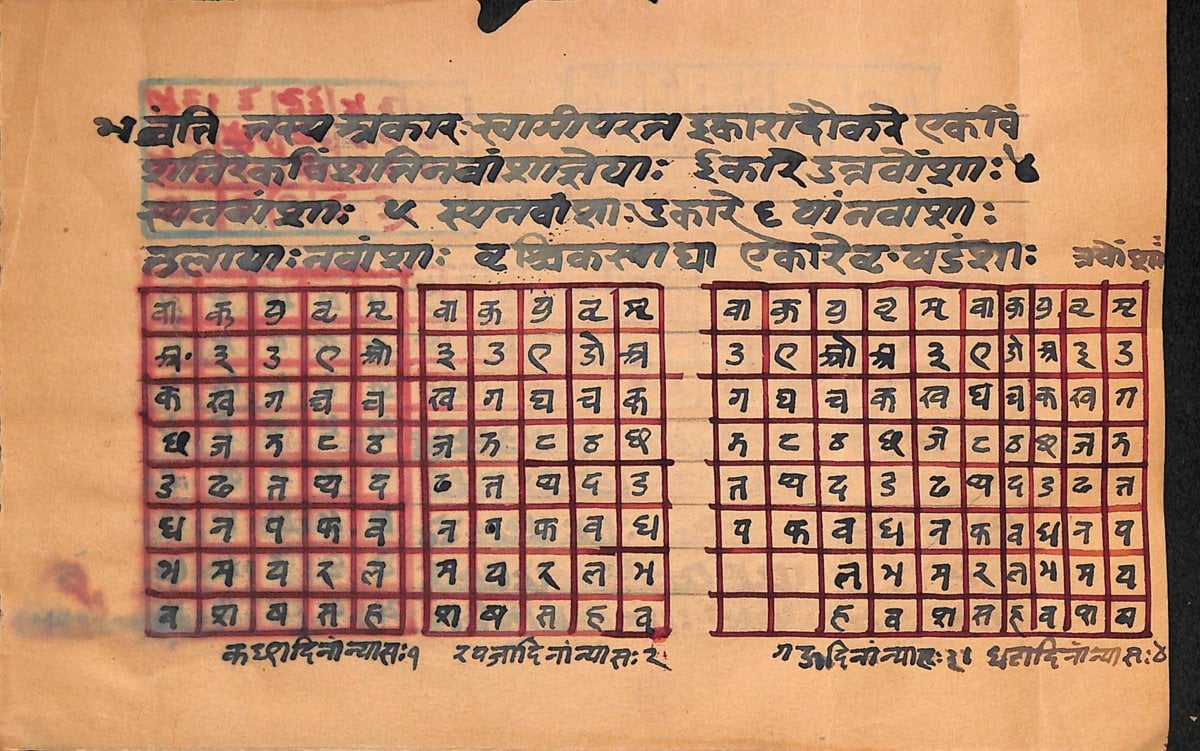 भवंति तस्य अकारः स्वामी परत इकारादौ करे एकविं
शतिरेकविंशतिनवांशाज्ञेयाः ईकारे उन्नवांशाः ४
स्यनवांशाः ५ स्यनवांशाः उकारे ६ यांनवांशाः
तुलायाः नवांशाः वृश्चिकस्याद्या एकारे ८ षडंशाः
बा क यु वृ प्र बा क यु वृ मृ बा क यु वृ मृ बा क यु वृ मृ
अ इ उ ए ओ इ उ ए ओ अ उ ए ओ अ इ ए ओ अ इ उ
क ख ग घ च ख ग घ च क ग घ च क ख घ च क ख ग
छ ज झ ट ठ ज झ ट ठ छ झ ट ठ छ ज ट ठ छ ज झ
ड ढ त थ द ढ त थ द ड त थ द ड ढ थ द ड ढ त
ध न प फ ब न प फ ब ध प फ ब ध न फ ब ध न प
भ म य र ल म य र ल भ ल भ म र ल भ म य
व श ष स ह श ष स ह व ह व श स ह व श ष
कछादिनांन्यासः १ खजादिनांन्यासः २ गझादिनांन्यासः ३ घटादिनांन्यासः ४